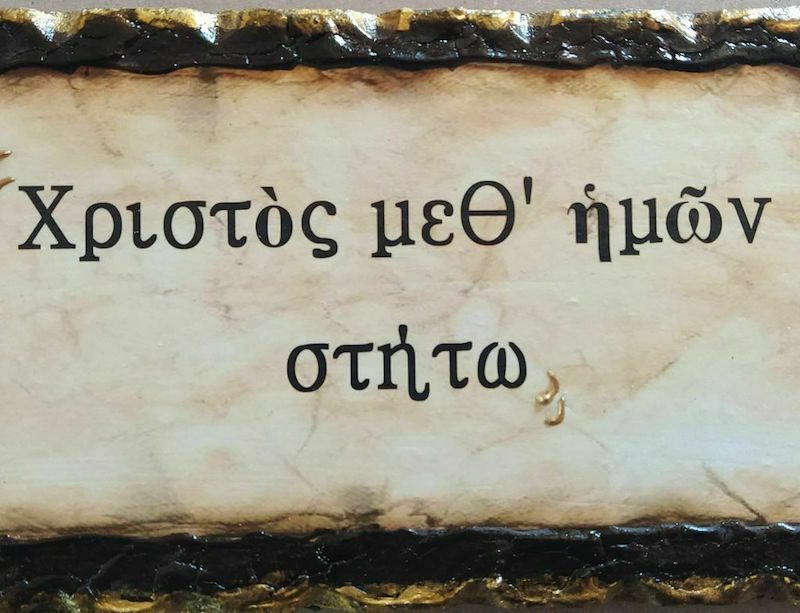 Χριστὸς μεθ' ἡμῶν
στήτω